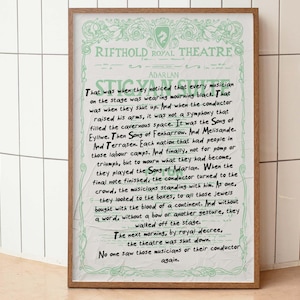 RIFTHOLD ROYAL THEATRE
ADARLAN
That was when they noticed that every musician
on the stage was wearing mourning black. That
was when they shut up. And when the conductor
raised his arms, it was not a symphony that
filled the cavernous space. It was the Song of
Eyllwe. Then Song of Fenharrow. And Melisande.
And Terrasen. Each nation that had people in
those labour camps. And finally, not for pomp or
triumph, but to mourn what they had become,
they played the Song of Adarlan. When the
final note finished, the conductor turned to the
crowd, the musicians standing with him. As one,
they looked to the boxes, to all those jewels
bought with the blood of a continent. And without
a word, without a bow or another gesture, they
walked off the stage.
The next morning, by royal decree,
the theatre was shut down.
No one saw those musicians or their conductor
again.